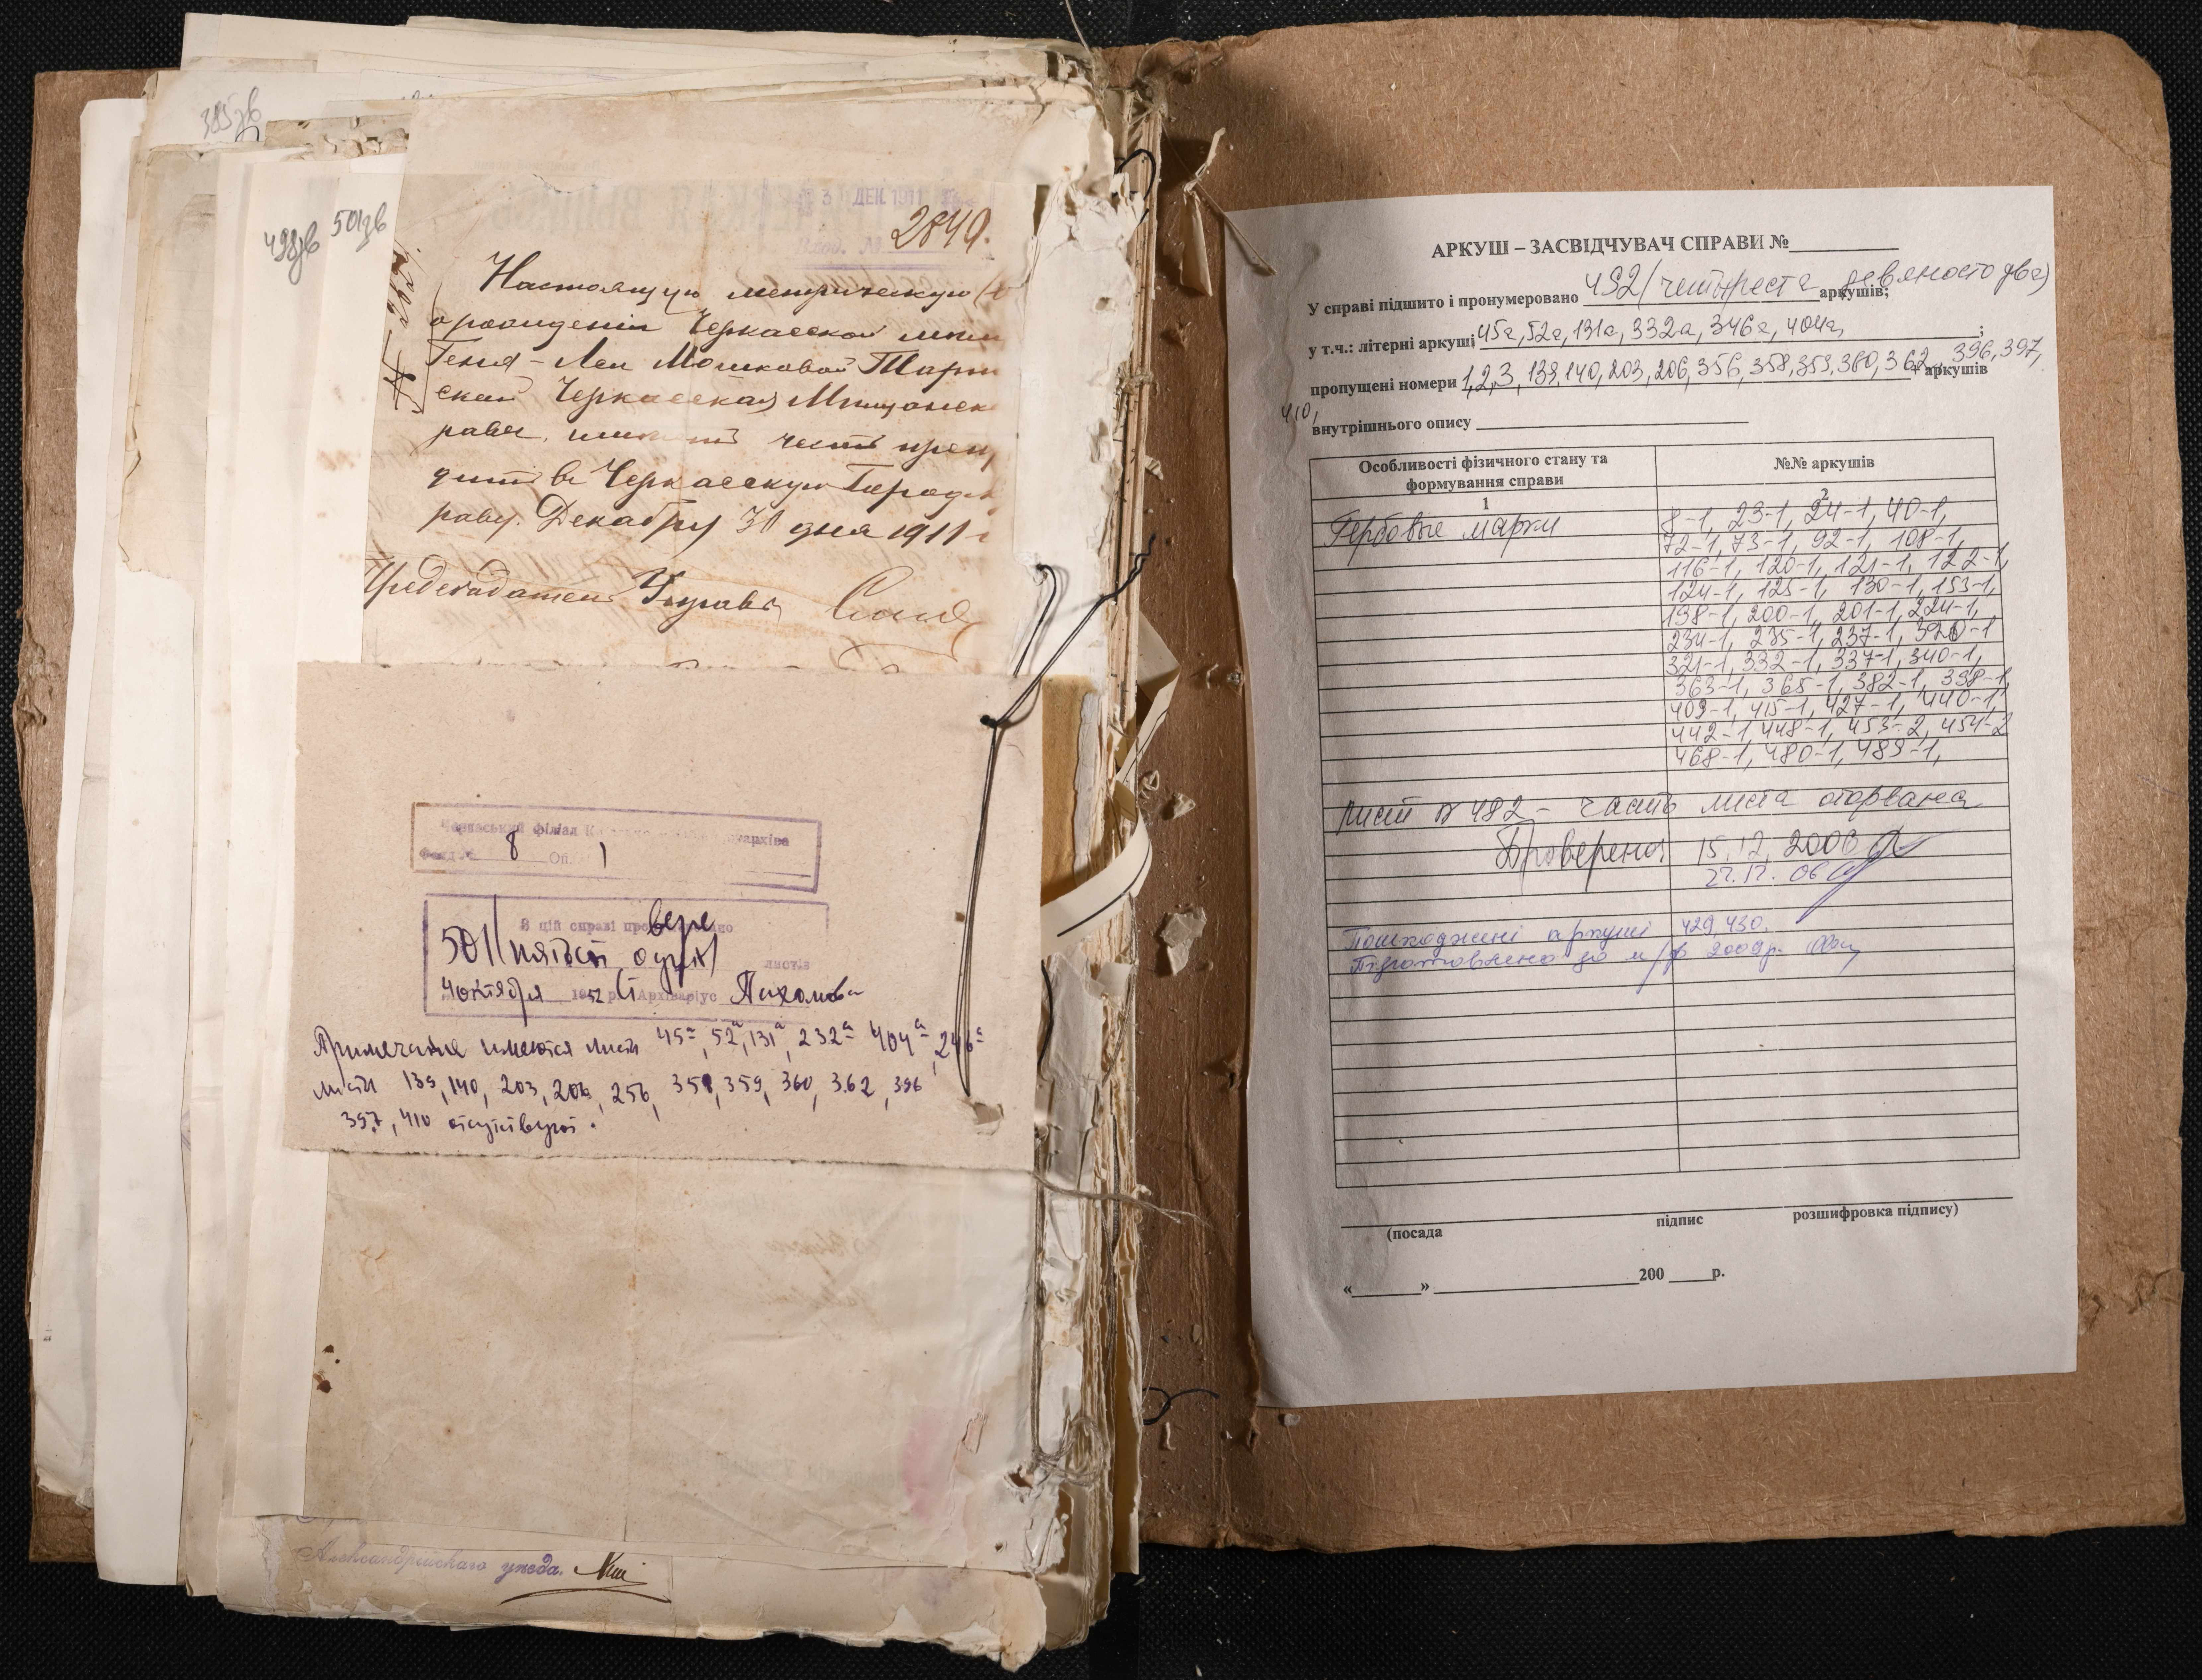 385зв
498зв
501зв
31 ДЕК. 1911
Вход. № 2849.
Настоящую метрическую
о рождении Черкасской
Геня-Леи Мошковой
ской Черкасская Мещанск
рава, имѣетъ честь преп
дить въ Черкасскую Городск
раву. Декабря 31 дня 1911 г
Председатель Управы
Черкаський філіал
Фонд № 8 Оп. 1
В цій справі провере но
501 (пятьсот один) листів
4 октября 1952 р. Архіваріус Пахомова
Примечание имеются листы 45а, 52а, 131а, 232а 404а, 246а
листы 139, 140, 203, 206, 256, 358, 359, 360, 362, 396
397, 410 отсутствуют.
Александрійскаго уѣзда.
АРКУШ – ЗАСВІДЧУВАЧ СПРАВИ №
У справі підшито і пронумеровано 492 (четыреста девяносто два) аркушів;
у т.ч.: літерні аркуші 45а, 52а, 131а, 332а, 346а, 404а, ;
пропущені номери 1, 2, 3, 139, 140, 203, 206, 356, 358, 359, 360, 362, 396, 397, + аркушів
410,
внутрішнього опису
Особливості фізичного стану та формування справи
№№ аркушів
1
2
Гербовые марки
8-1, 23-1, 24-1, 40-1,
72-1, 73-1, 92-1, 108-1,
116-1, 120-1, 121-1, 122-1,
124-1, 125-1, 130-1, 153-1,
198-1, 200-1, 201-1, 224-1,
234-1, 235-1, 237-1, 320-1
321-1, 332-1, 337-1, 340-1,
363-1, 365-1, 382-1, 398-1,
409-1, 415-1, 427-1, 440-1,
442-1, 448-1, 453-2, 454-2
468-1, 480-1, 489-1,
Лист № 492 – часть листа оторвана
Проверено 15.12.2006
22.12.06
Пошкоджені аркуші 429, 430.
Підготовлено до м/ф 2009р.
(посада
підпис
розшифровка підпису)
« » 200 р.